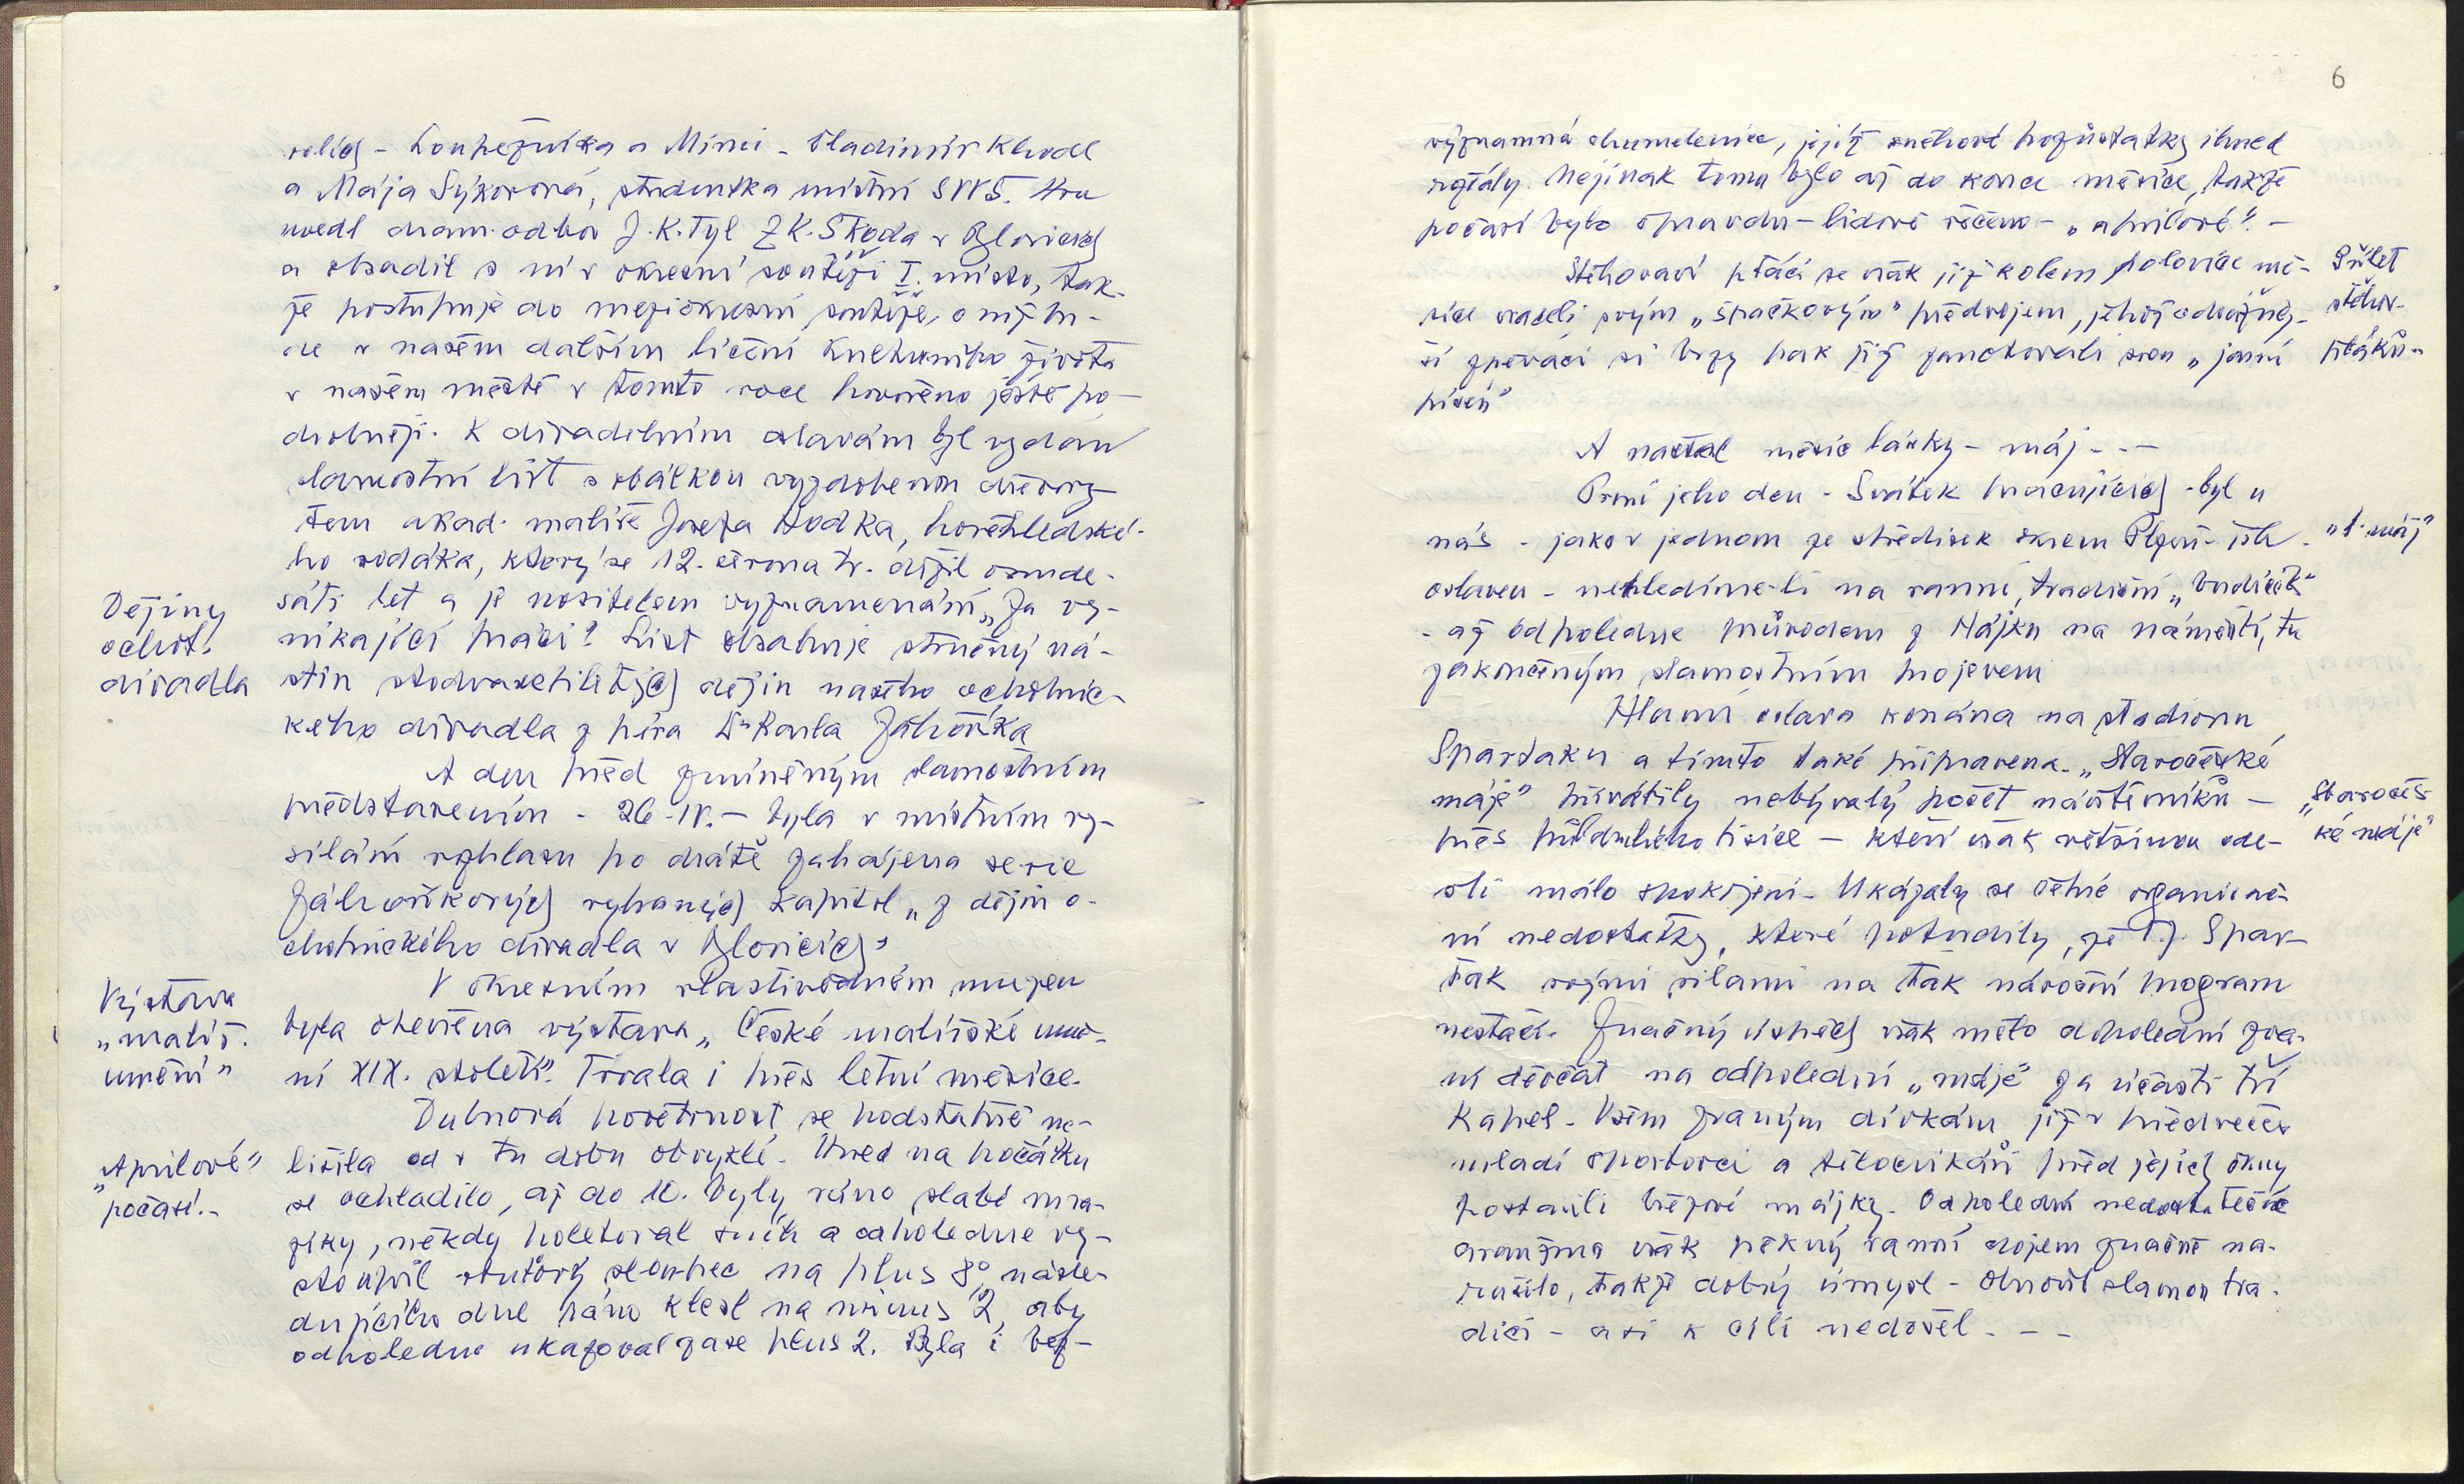 rolích - Loupežníka a Mimi - Vladimír Khodl
a Mája Sýkorová, studentka místní SVVŠ. Hru
uvedl dram. odbor J. K. Tyl ZK. Škoda v Blovicích
a obsadil s ní v okresní soutěži I. místo, tak-
že postupuje do meziokresní soutěže, o níž bu-
de v našem dalším líčení kulturního života
v našem městě v tomto roce hovořeno ještě po-
drobněji. K divadelním oslavám byl vydán
slavnostní list s obálkou vyzdobenou dřevory-
tem akad. malíře Josefa Hodka, hořehledské-
ho rodáka, který se 12. června t.r. dožil osmde-
Dějiny
ochot.
divadla
sáti let a je nositelem vyznamenání „Za vy-
nikající práci". List obsahuje stručný ná-
stin stodvacetiletých dějin našeho ochotnic-
kého divadla z péra Dr Karla Záhoříka
A den před zmíněným slavnostním
představením - 26. IV. - byla v místním vy-
sílání rozhlasu po drátě zahájena serie
Záhoříkových vybraných kapitol „z dějin o-
chotnického divadla v Blovicích"
Výstava
„malíř.
umění"
V okresním vlastivědném muzeu
byla otevřena výstava „České malířské umě-
ní XIX. století". Trvala i přes letní měsíce.
Dubnová povětrnost se podstatně ne-
„Aprilové"
počasí.-
lišila od v tu dobu obvyklé. Hned na počátku
se ochladilo, až do 10. byly ráno slabé mra-
zíky, někdy poletoval sníh a odpoledne vy-
stoupil rtuťový sloupec na plus 8°, násle-
dujícího dne ráno klesl na minus 2, aby
odpoledne ukazoval zase plus 2. Byla i bez-
6
významná chumelenice, jejíž sněhové pozůstatky ihned
roztály. Nejinak tomu bylo až do konce měsíce, takže
počasí bylo opravdu - lidově řečeno - „aprilové". -
Přílet
stěhov.
ptáků-
Stěhovaví ptáci se však již kolem polovice mě-
síce vraceli svým „špačkovým" předvojem, jehož odvážněj-
ší zpěváci si brzy pak již zanotovali svou „jarní
píseň"
A nastal měsíc lásky - máj - - -
První jeho den - Svátek pracujících - byl u
„1. máj"
nás - jako v jednom ze středisek okresu Plzeň - jih -
oslaven - nehledíme-li na ranní, tradiční „budíček"
- až odpoledne průvodem z Hájku na náměstí, tu
zakončeným slavnostním projevem
Hlavní oslava konána na stadionu
Spartaku a tímto také připravena. „Staročeské
„Staročes-
ké máje"
máje" přivábily nebývalý počet návštěvníků -
přes půldruhého tisíce - kteří však většinou ode-
šli málo spokojeni. Ukázaly se četné organizač-
ní nedostatky, které potvrdily, že T.J. Spar-
tak svými silami na tak náročný program
nestačí. Značný úspěch však mělo dopolední zva-
ní děvčat na odpolední „máje" za účasti tří
kapel. Všem zvaným dívkám již v předvečer
mladí sportovci a tělocvikáři před jejich okny
postavili březové májky. Odpolední nedostatečné
aranžmá však pěkný ranní dojem značně na-
rušilo, takže dobrý úmysl - obnovit slavnou tra-
dici - asi k cíli nedošel. - -